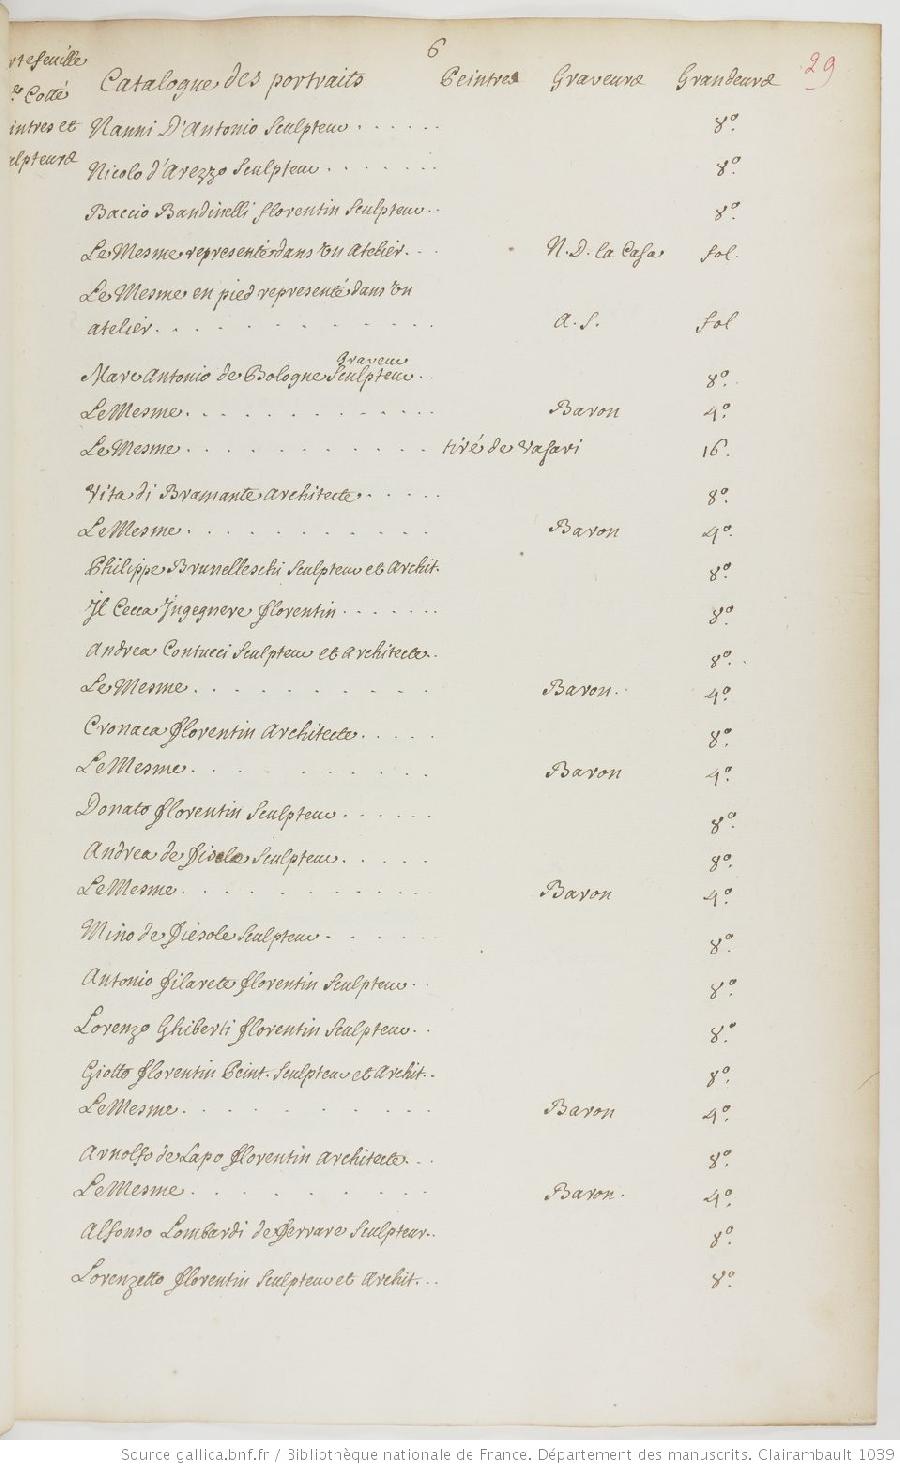 6
29
Catalogue des portraits Peintres Graveurs Grandeurs
Cotté
Nanni D'Antonio Sculpteur . . . . . . 8º.
Nicolo d'Arezzo Sculpteur . . . . . . . 8º.
Baccio Bandinelli florentin Sculpteur . . 8º.
Le Mesme representé dans un Atelier. . . N. D. la Casa fol.
Le Mesme en pied representé dans un
atelier. . . . . . . . . . . . a. s. fol
Graveur
Marc Antonio de Bologne Sculpteur . 8º.
Le Mesme. . . . . . . . . . . . Baron 4º.
Le Mesme. . . . . . . . . . . . tiré de Vasari 16.
Vita di Bramante Architecte. . . . . . 8º.
Le Mesme. . . . . . . . . . . . Baron 4º.
Philippe Brunelleschi Sculpteur et Archit. 8º.
Il Cecca Ingegnere florentin . . . . . . . 8º.
Andrea Contucci Sculpteur et Architecte. . 8º.
Le Mesme . . . . . . . . . . . Baron. 4º.
Cronaca florentin Architecte . . . . . 8º.
Le Mesme. . . . . . . . . . . Baron 4º.
Donato florentin Sculpteur . . . . . . 8º.
Andrea de Fisole Sculpteur. . . . . 8º.
Le Mesme. . . . . . . . . . . Baron 4º.
Mino de Fiesole Sculpteur . . . . . 8º.
Antonio filarete florentin Sculpteur . . 8º.
Lorenzo Ghiberti florentin Sculpteur . . 8º.
Giotto florentin Peint. Sculpteur et Archit. . 8º.
Le Mesme. . . . . . . . . . . Baron 4º.
Arnolfo de Lapo florentin Architecte. . . 8º.
Le Mesme . . . . . . . . . . . Baron. 4º.
Alfonso Lombardi de Ferrare Sculpteur. . 8º.
Lorenzetto florentin Sculpteur et Archit. . . 8º.
Source gallica.bnf.fr / Bibliothèque nationale de France. Département des manuscrits. Clairambault 1039